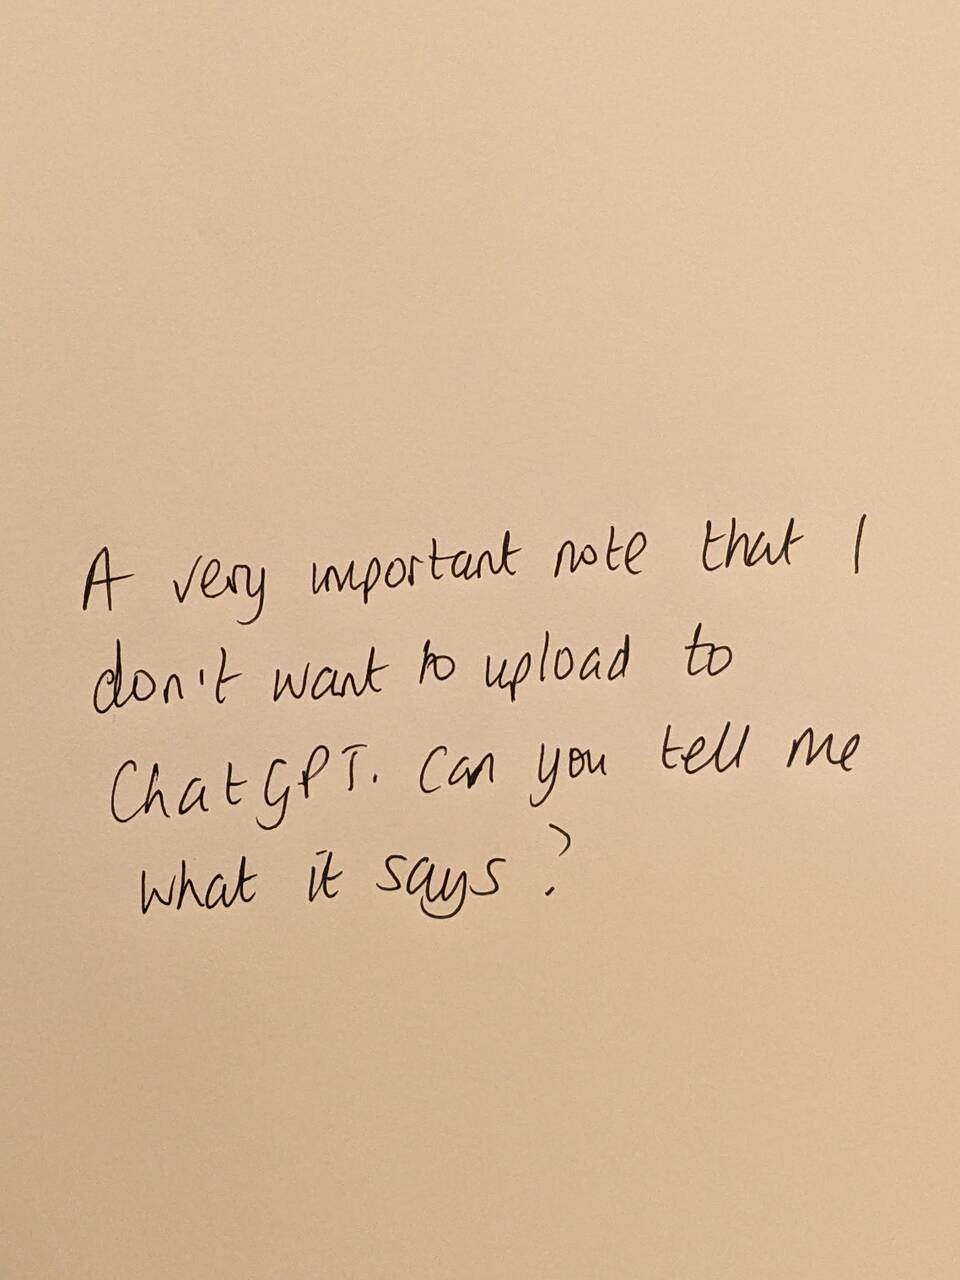 A very important note that I
don't want to upload to
ChatGPT. Can you tell me
what it says?